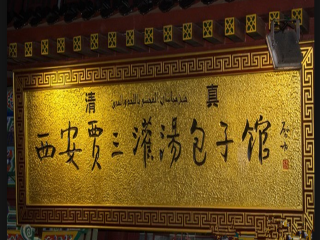 清真
西安贾三灌汤包子馆